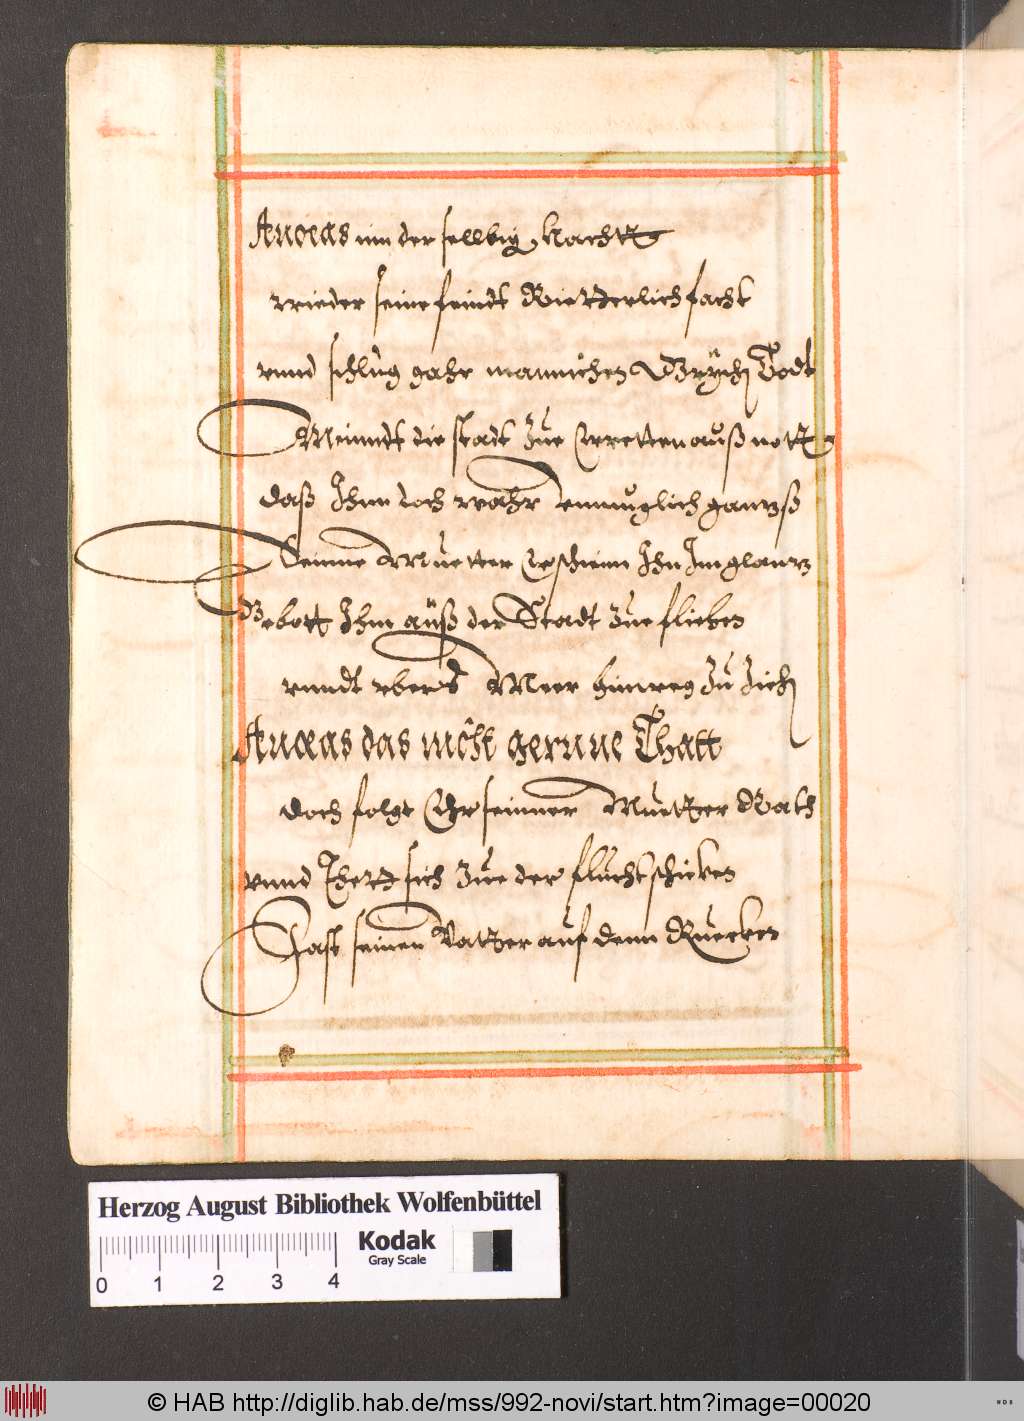 Aneas inn der sellbig Nachtt
wieder seine feindt Rietterlich facht
vnnd schlug gahr mannichen Grychen Todt
Meinndt die stadt Zue Errettenn auß nott
daß Ihm doch wahr vnmuglich gantzß
Seinne Muetter Erschienn Ihn Im glantz
Gebott Ihm auß der Stadt Zue flieben
vnndt vbers Meer hinweg Zu Ziehen
Aneas das nicht gernne Thatt
doch folgt Ehr seinner Muetter Rath
vnnd Thett sich Zue der flucht schicken
Fast seinen Vatter auf denn Ruecken
Herzog August Bibliothek Wolfenbüttel
Kodak
Gray Scale
0 1 2 3 4
© HAB http://diglib.hab.de/mss/992-novi/start.htm?image=00020